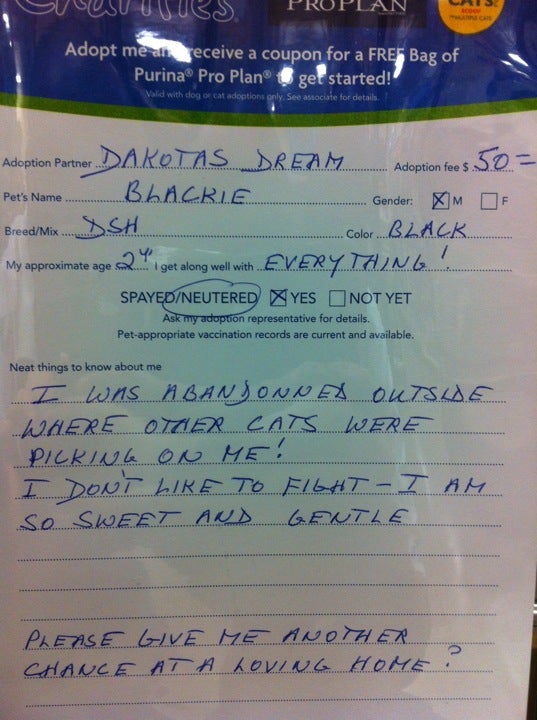 Charities
PROPLAN
CATS
Adopt me and receive a coupon for a FREE Bag of
Purina® Pro Plan® to get started!
Valid with dog or cat adoptions only. See associate for details.
Adoption Partner DAKOTAS DREAM Adoption fee $ 50=
Pet's Name BLACKIE Gender: ☒ M ☐ F
Breed/Mix DSH Color BLACK
My approximate age 2 I get along well with EVERYTHING!
SPAYED/NEUTERED ☒ YES ☐ NOT YET
Ask my adoption representative for details.
Pet-appropriate vaccination records are current and available.
Neat things to know about me
I WAS ABANDONNED OUTSIDE
WHERE OTHER CATS WERE
PICKING ON ME!
I DON'T LIKE TO FIGHT - I AM
SO SWEET AND GENTLE
PLEASE GIVE ME ANOTHER
CHANCE AT A LOVING HOME?